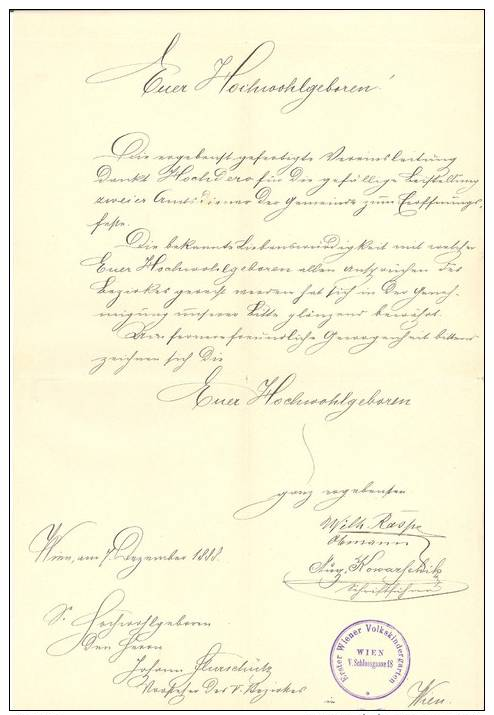 Euer Hochwohlgeboren!
Die ergebenst gefertigte Vereinsleitung
dankt Hochdero für die gefällige Beistellung
zweier Amtsdiener der Gemeinde zum Eröffnungs-
feste.
Die bekannte Liebenswürdigkeit mit welcher
Euer Hochwohlgeboren allen Ansprüchen des
Bezirkes gerecht werden hat sich in der Geneh-
migung unserer Bitte glänzend bewährt.
Um fernere freundliche Gewogenheit bittend
zeichnen sich die
Euer Hochwohlgeboren
ganz ergebensten
Wilh. Raspe
Obmann
Aug. Kowarschik
Schriftführer
Wien, am 7. Dezember 1888.
Sr. Hochwohlgeboren
den Herrn
Johann
Vorsteher des V. Bezirkes
in Wien.
Erster Wiener Volkskindergarten
WIEN
V. Schlossgasse 18